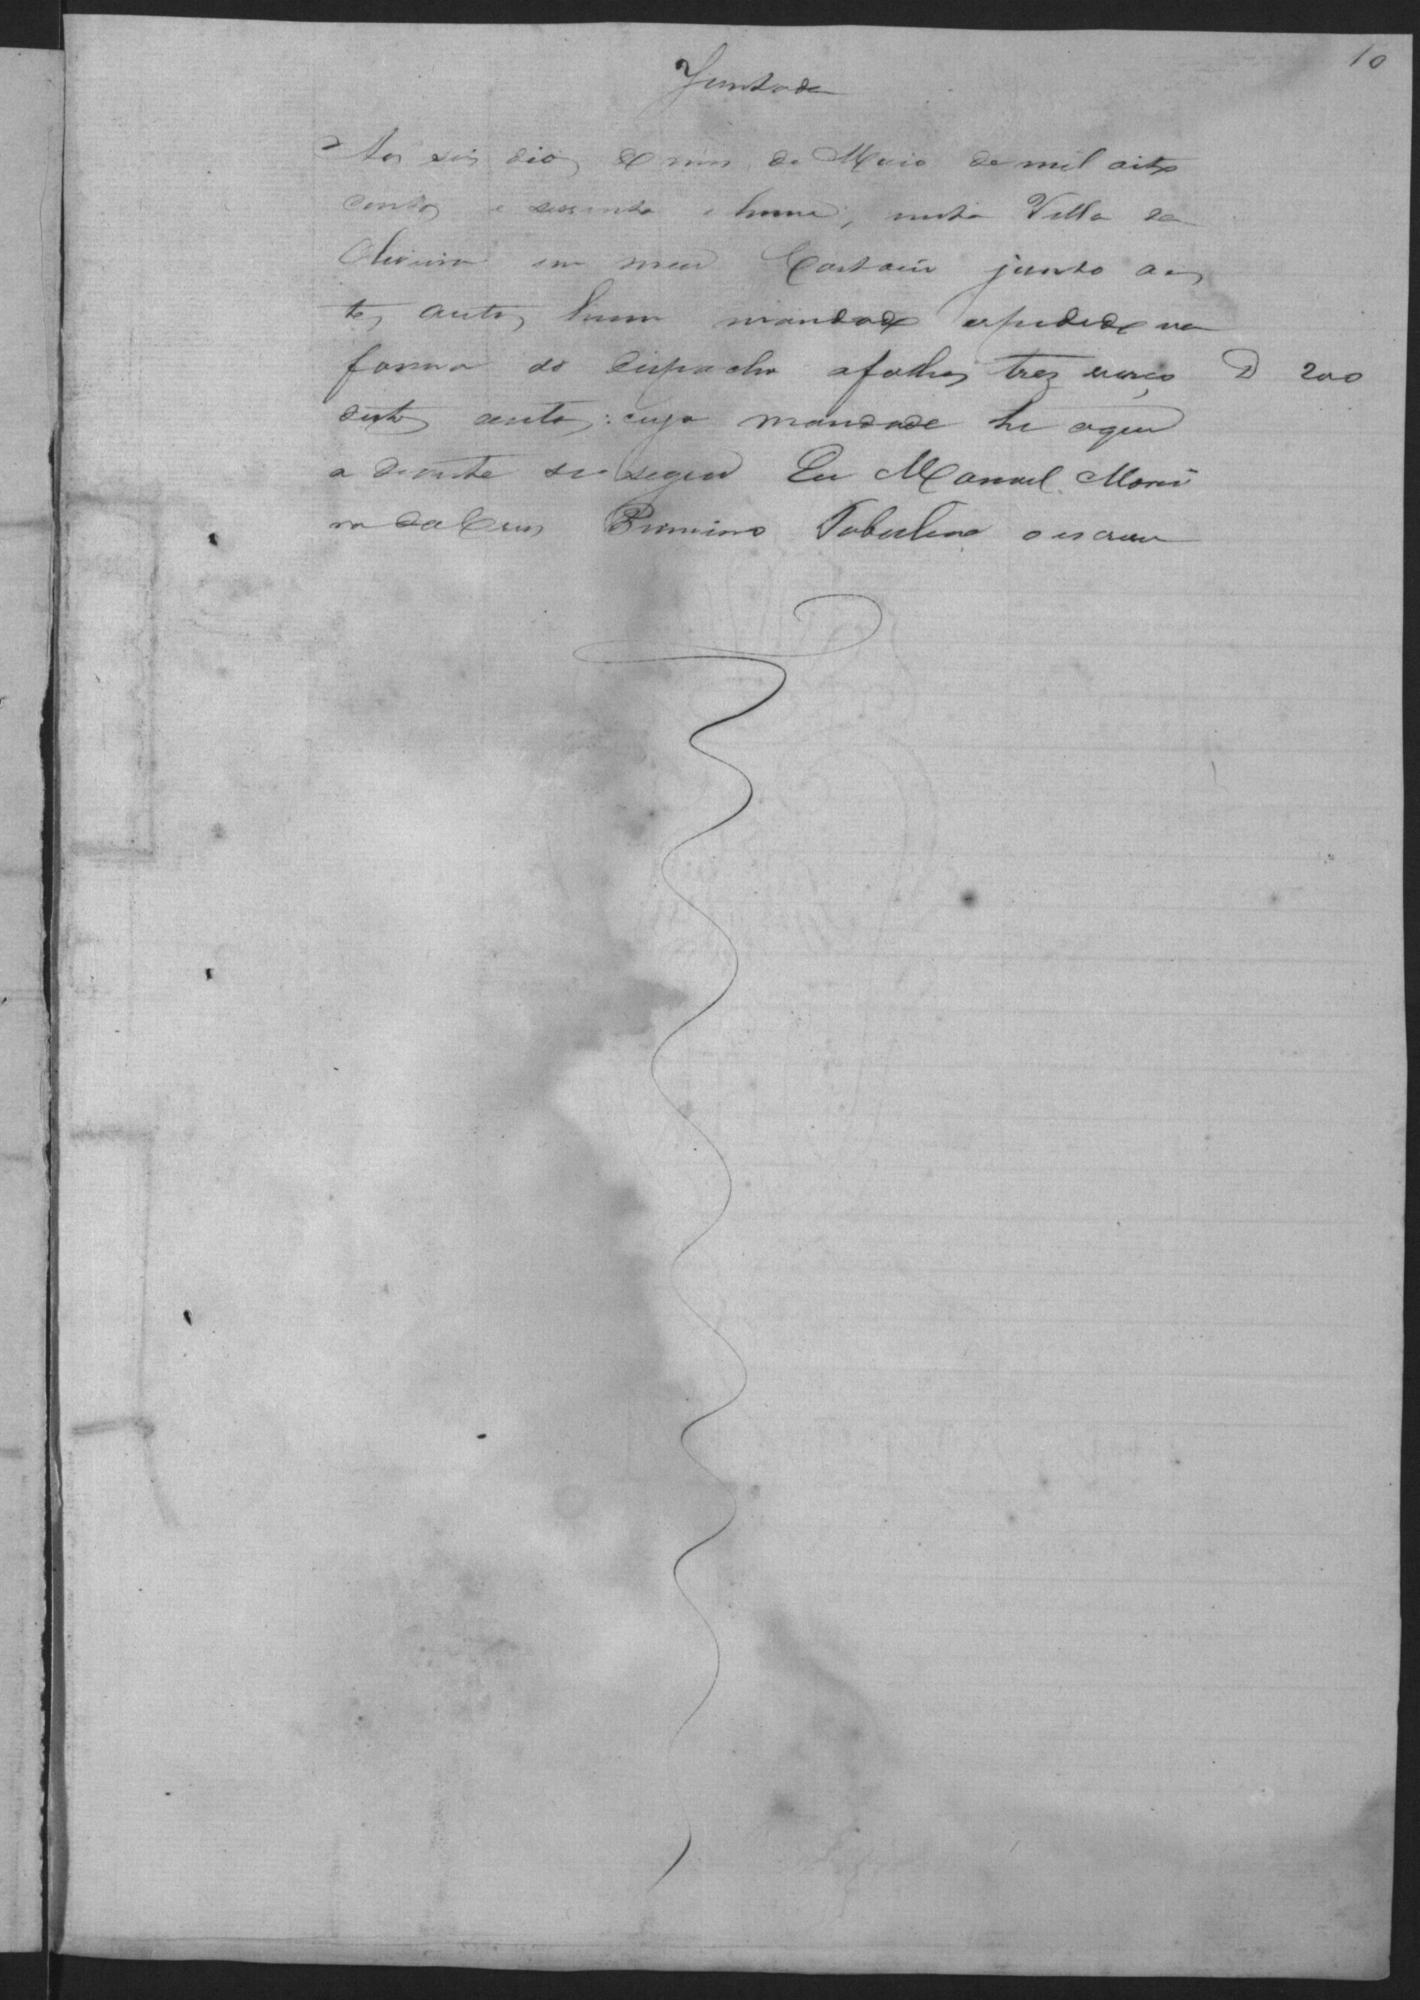 10
Juntada
Aos seis dias do mes de Maio de mil oito
centos e sessenta e hum, nesta Villa da
Oliveira em meu Cartorio junto a es
tes autos hum mandado expedido na
forma do dispacho afolhas trez verço D 200
destes autos: cujo mandado he oque
a diante se segue Eu Manoel Morei
ra da Crus Primeiro Tabelião o escrevi